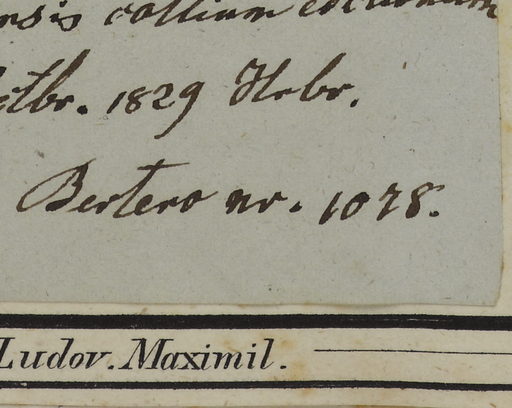 nsis collium
ctbr. 1829 Hrbr.
Bertero nr. 1078.
Ludov. Maximil.